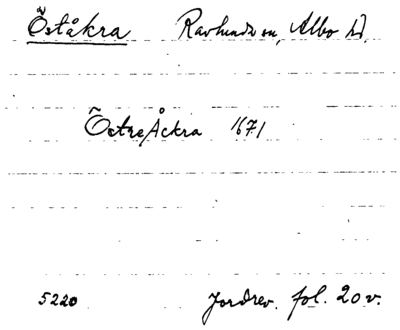 Öståkra Ravlunda sn, Albo hd.
Östre Åckra 1671
5220 Jordrev. fol. 20 v.